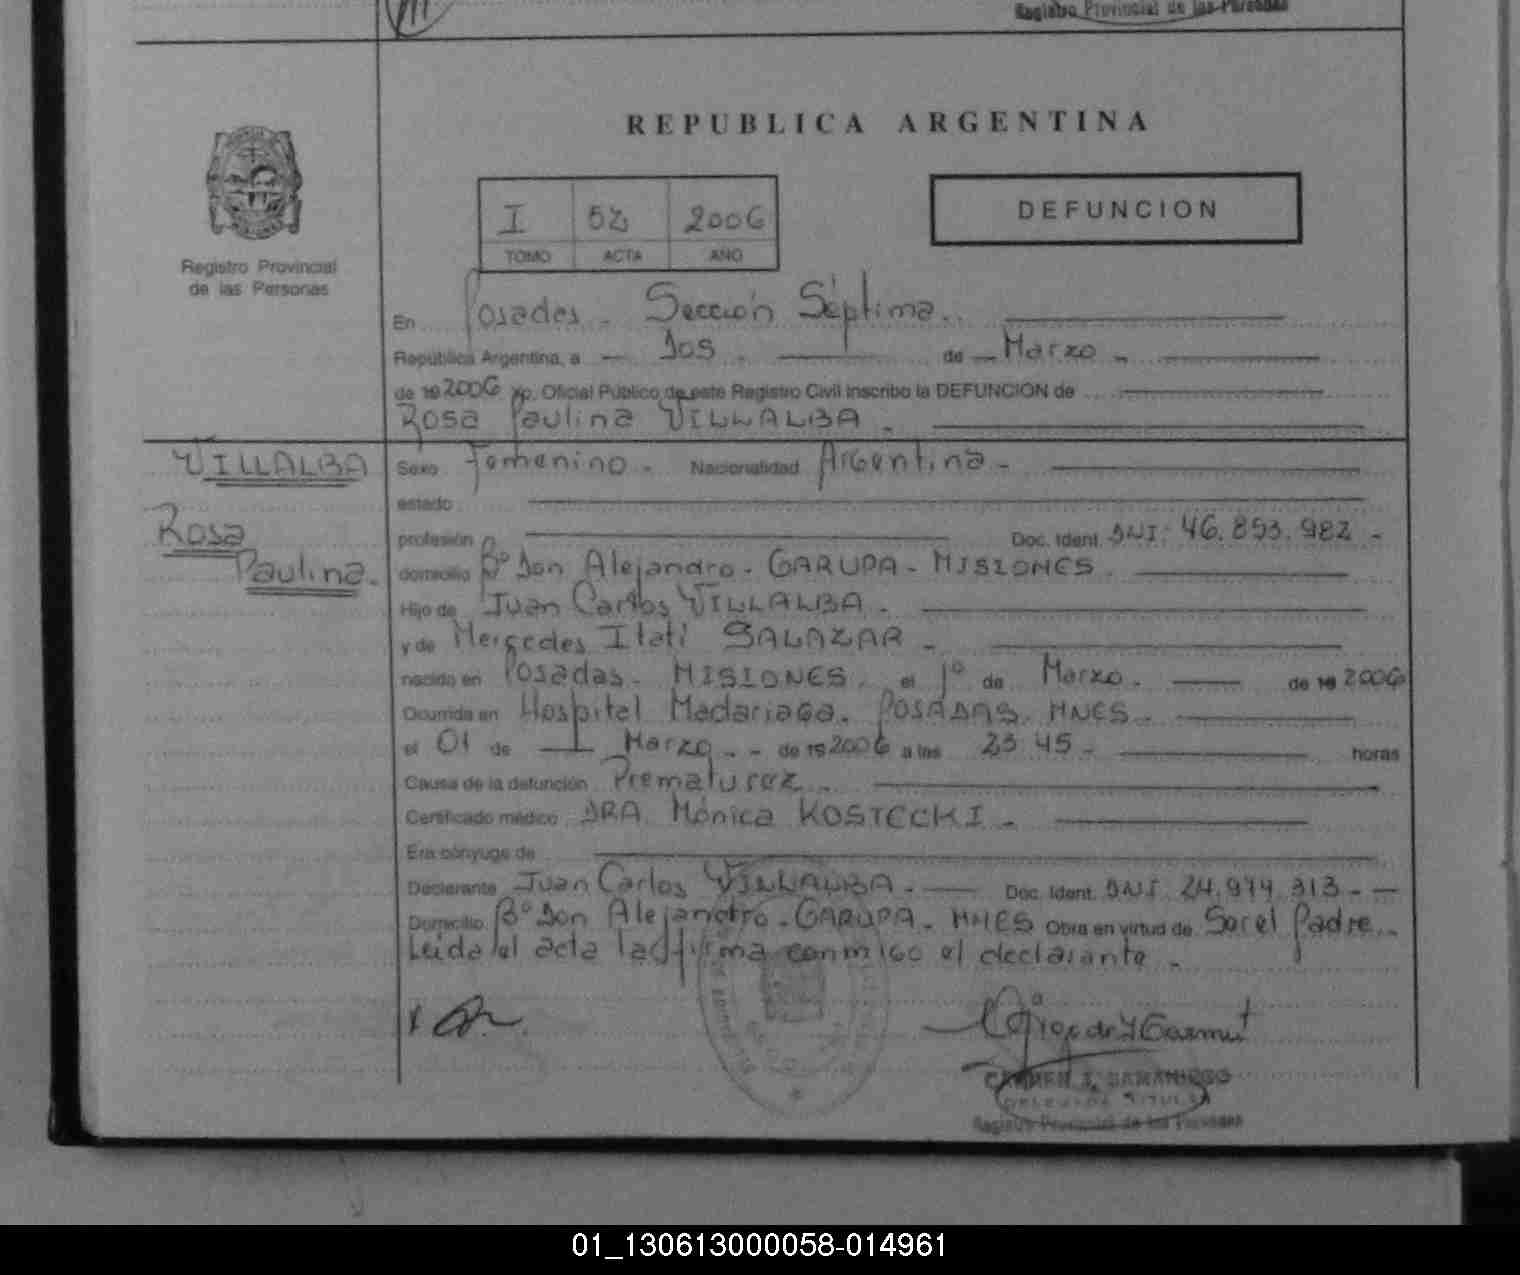 Registro Provincial de las Personas
REPUBLICA ARGENTINA
I 52 2006
TOMO ACTA AÑO
DEFUNCION
Registro Provincial
de las Personas
En Posadas - Sección Séptima.
República Argentina, a - Dos - de - Marzo -
de 19 2006 yo, Oficial Público de este Registro Civil inscribo la DEFUNCION de
Rosa Paulina VILLALBA -
VILLALBA
Rosa
Paulina.
Sexo Femenino - Nacionalidad Argentina -
estado
profesión Doc. Ident. DNI: 46.853.982 -
domicilio Bº Don Alejandro - GARUPA - MISIONES
Hijo de Juan Carlos VILLALBA -
y de Mercedes Itati SALAZAR -
nacido en Posadas - MISIONES. el 1º de Marzo. de 19 2006
Ocurrida en Hospital Madariaga. POSADAS. MNES -
el 01 de Marzo - - de 19 2006 a las 23:45 - horas
Causa de la defunción Prematurez
Certificado médico DRA. Mónica KOSTECKI -
Era cónyuge de
Declarante Juan Carlos VILLALBA - Doc. Ident. DNI. 24.974.313 - -
Domicilio Bº Don Alejandro - GARUPA - MNES Obra en virtud de Ser el Padre -
Leída el acta la firma conmigo el declarante -
CARMEN I. SAMANIEGO
DELEGADA TITULAR
Registro Provincial de las Personas
01_130613000058-014961